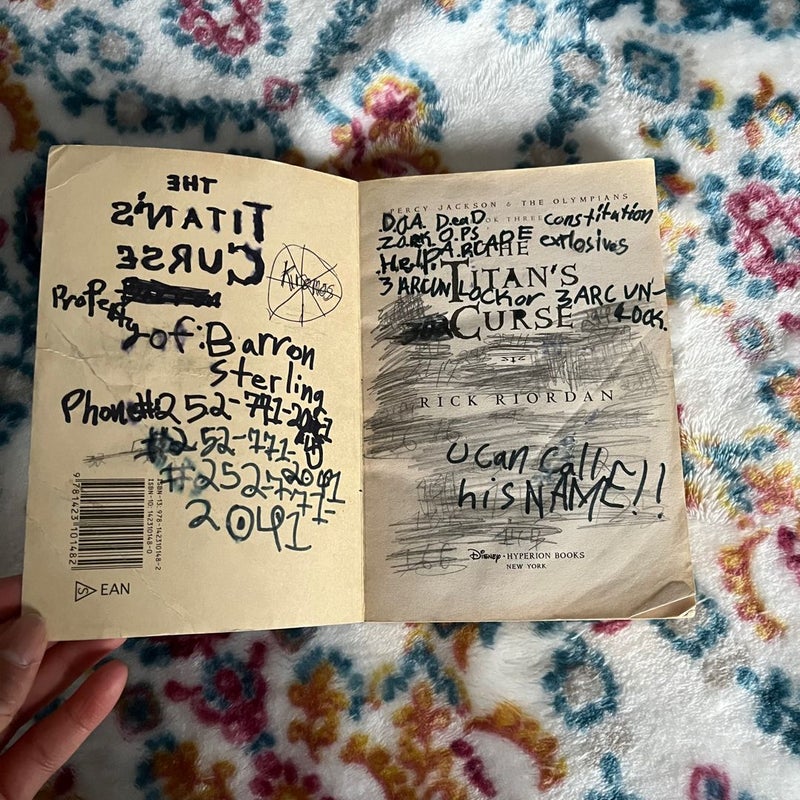 THE
TITAN'S
CURSE
Property
of: Barron
Sterling
Phone#252-741-
#252-771-
2041
#252-771-
2041
ISBN-13: 978-142310148-2
ISBN-10: 142310148-0
9 781423 101482
S EAN
PERCY JACKSON & THE OLYMPIANS
OK THREE
D.O.A. DeaD constitution
OPS
Help! ARCADE explosives
3 ARCUNLOCK or 3 ARC UN-
LOCK.
THE
TITAN'S
CURSE
RICK RIORDAN
U can call
his NAME!!
Disney • HYPERION BOOKS
NEW YORK